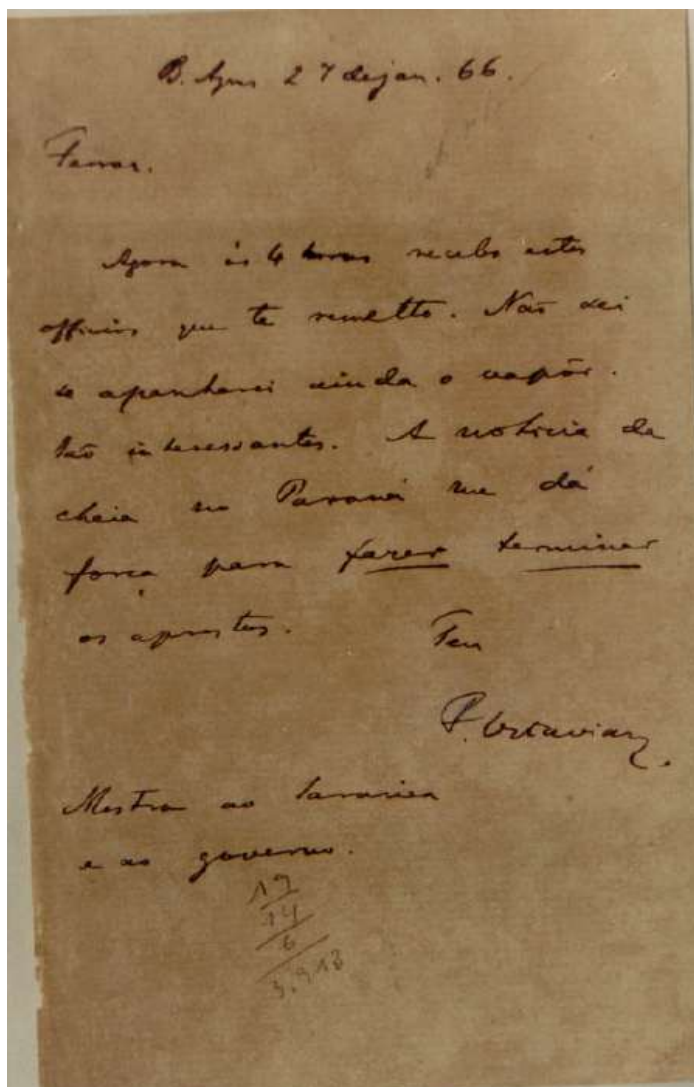 B. Ayres 27 de jan. 66.
Agora ás 4 horas recebo estes
officios que te remetto. Não sei
se apanharei ainda o vapôr.
São interessantes. A noticia da
cheia no Paraná me dá
força para fazer terminar
os aprestos.
Teu
F. Octaviano.
Mostra ao Saraiva
e ao governo.
19
14
6